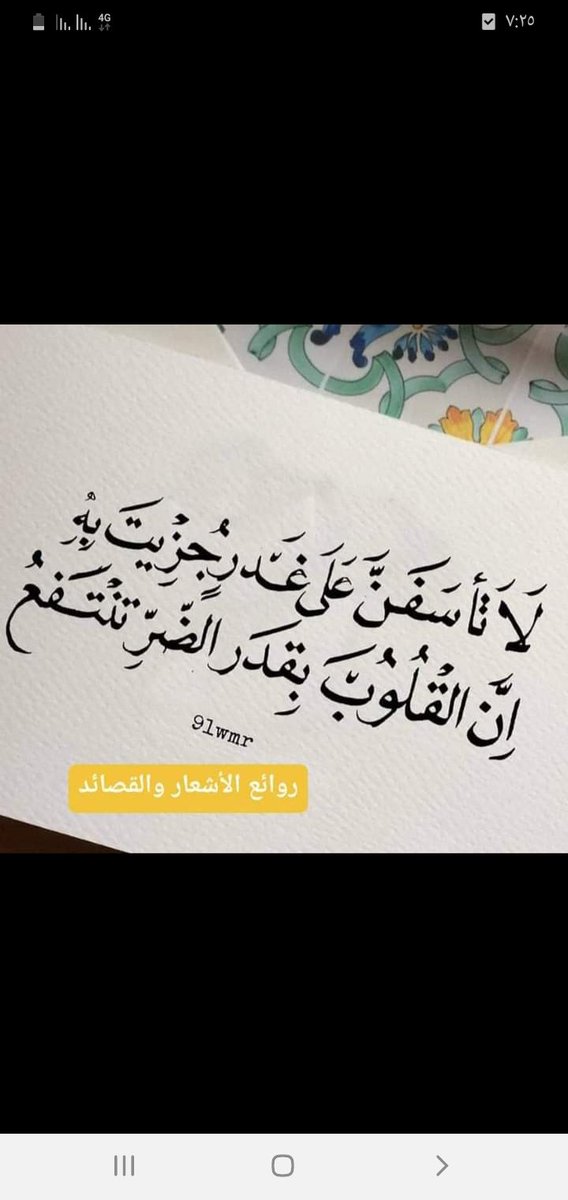 4G
٧:٢٥
لَا تَأْسَفَنَّ عَلَى غَدرٍ جُزِيتَ بِهِ
إِنَّ الْقُلُوبَ بِقَدَرِ الضُّرِّ تَنْتَفِعُ
9lwmr
روائع الأشعار والقصائد